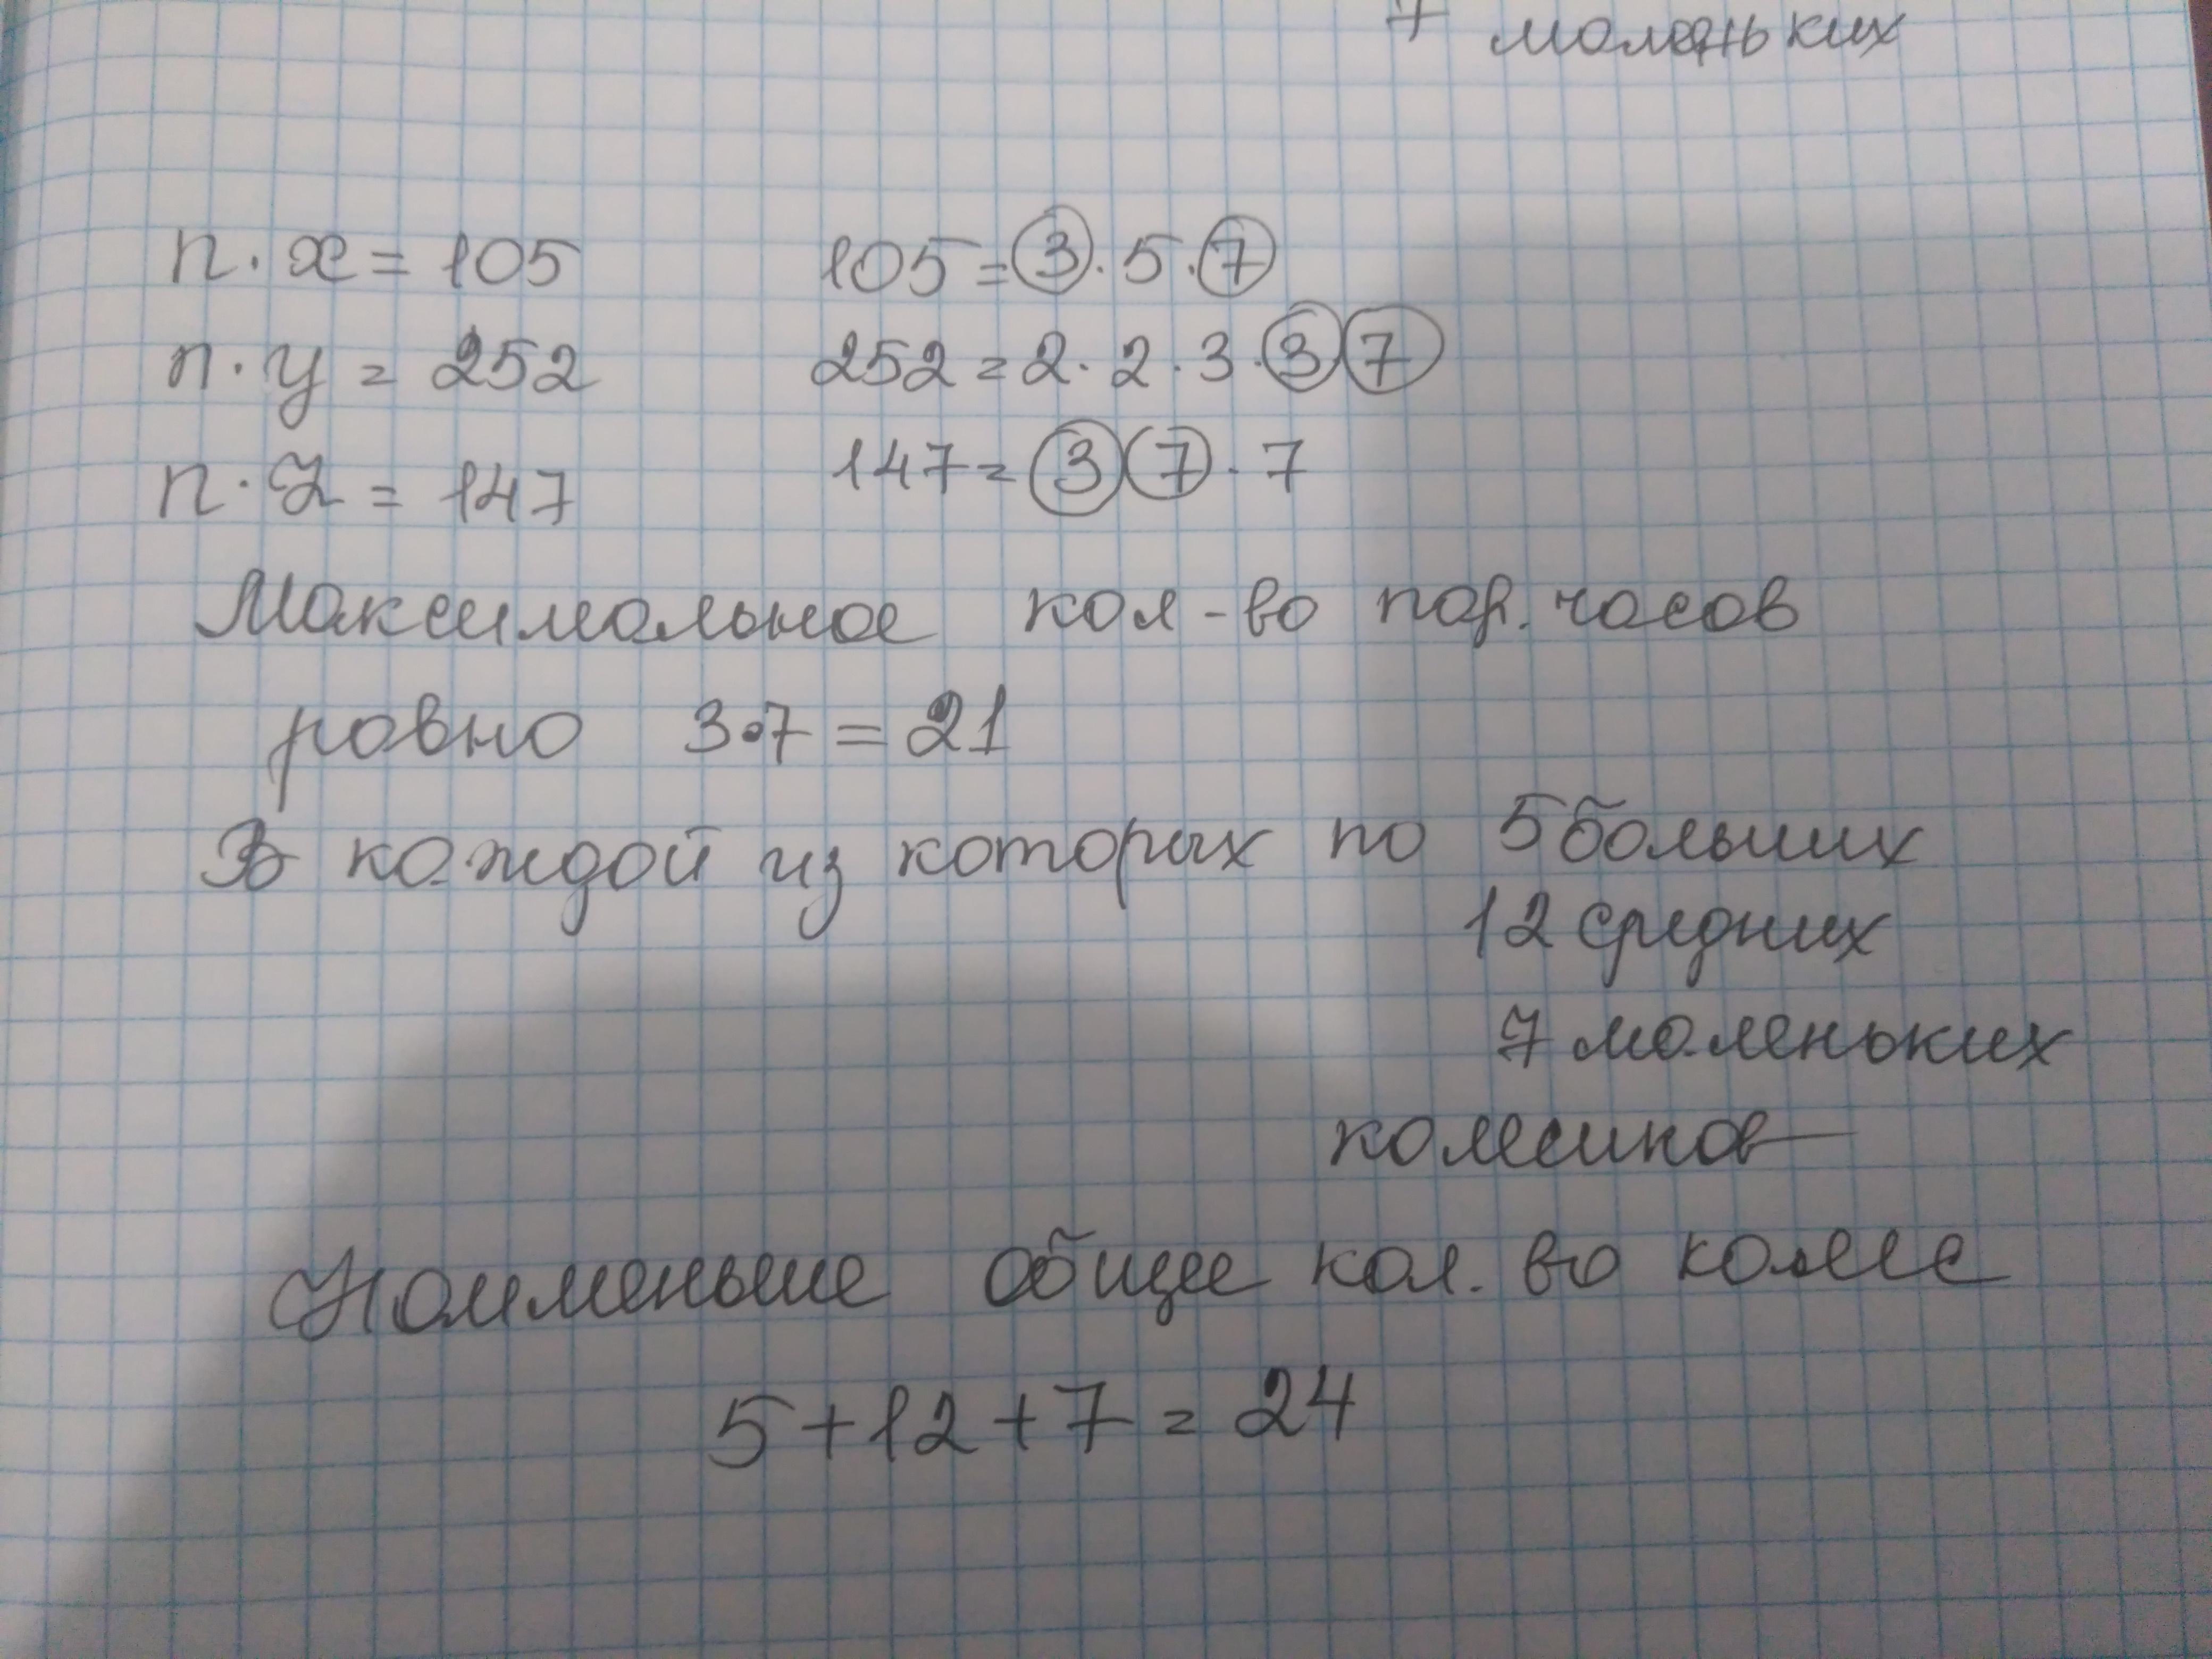 7 маленьких
n · x = 105 105 = 3 · 5 · 7
n · y = 252 252 = 2 · 2 · 3 · 3 7
n · z = 147 147 = 3 7 · 7
Максимальное кол-во пар. часов
ровно 3 · 7 = 21
В каждой из которых по 5 больших
12 средних
7 маленьких
колесиков
Наименьше общее кол. во колес
5 + 12 + 7 = 24